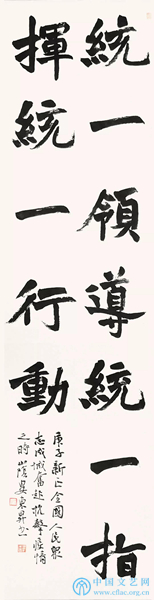 統一領導統一指
揮統一行動
庚子新正全國人民眾
志成城奮起抗擊疫情
之時
中国文艺网
www.cflac.org.cn